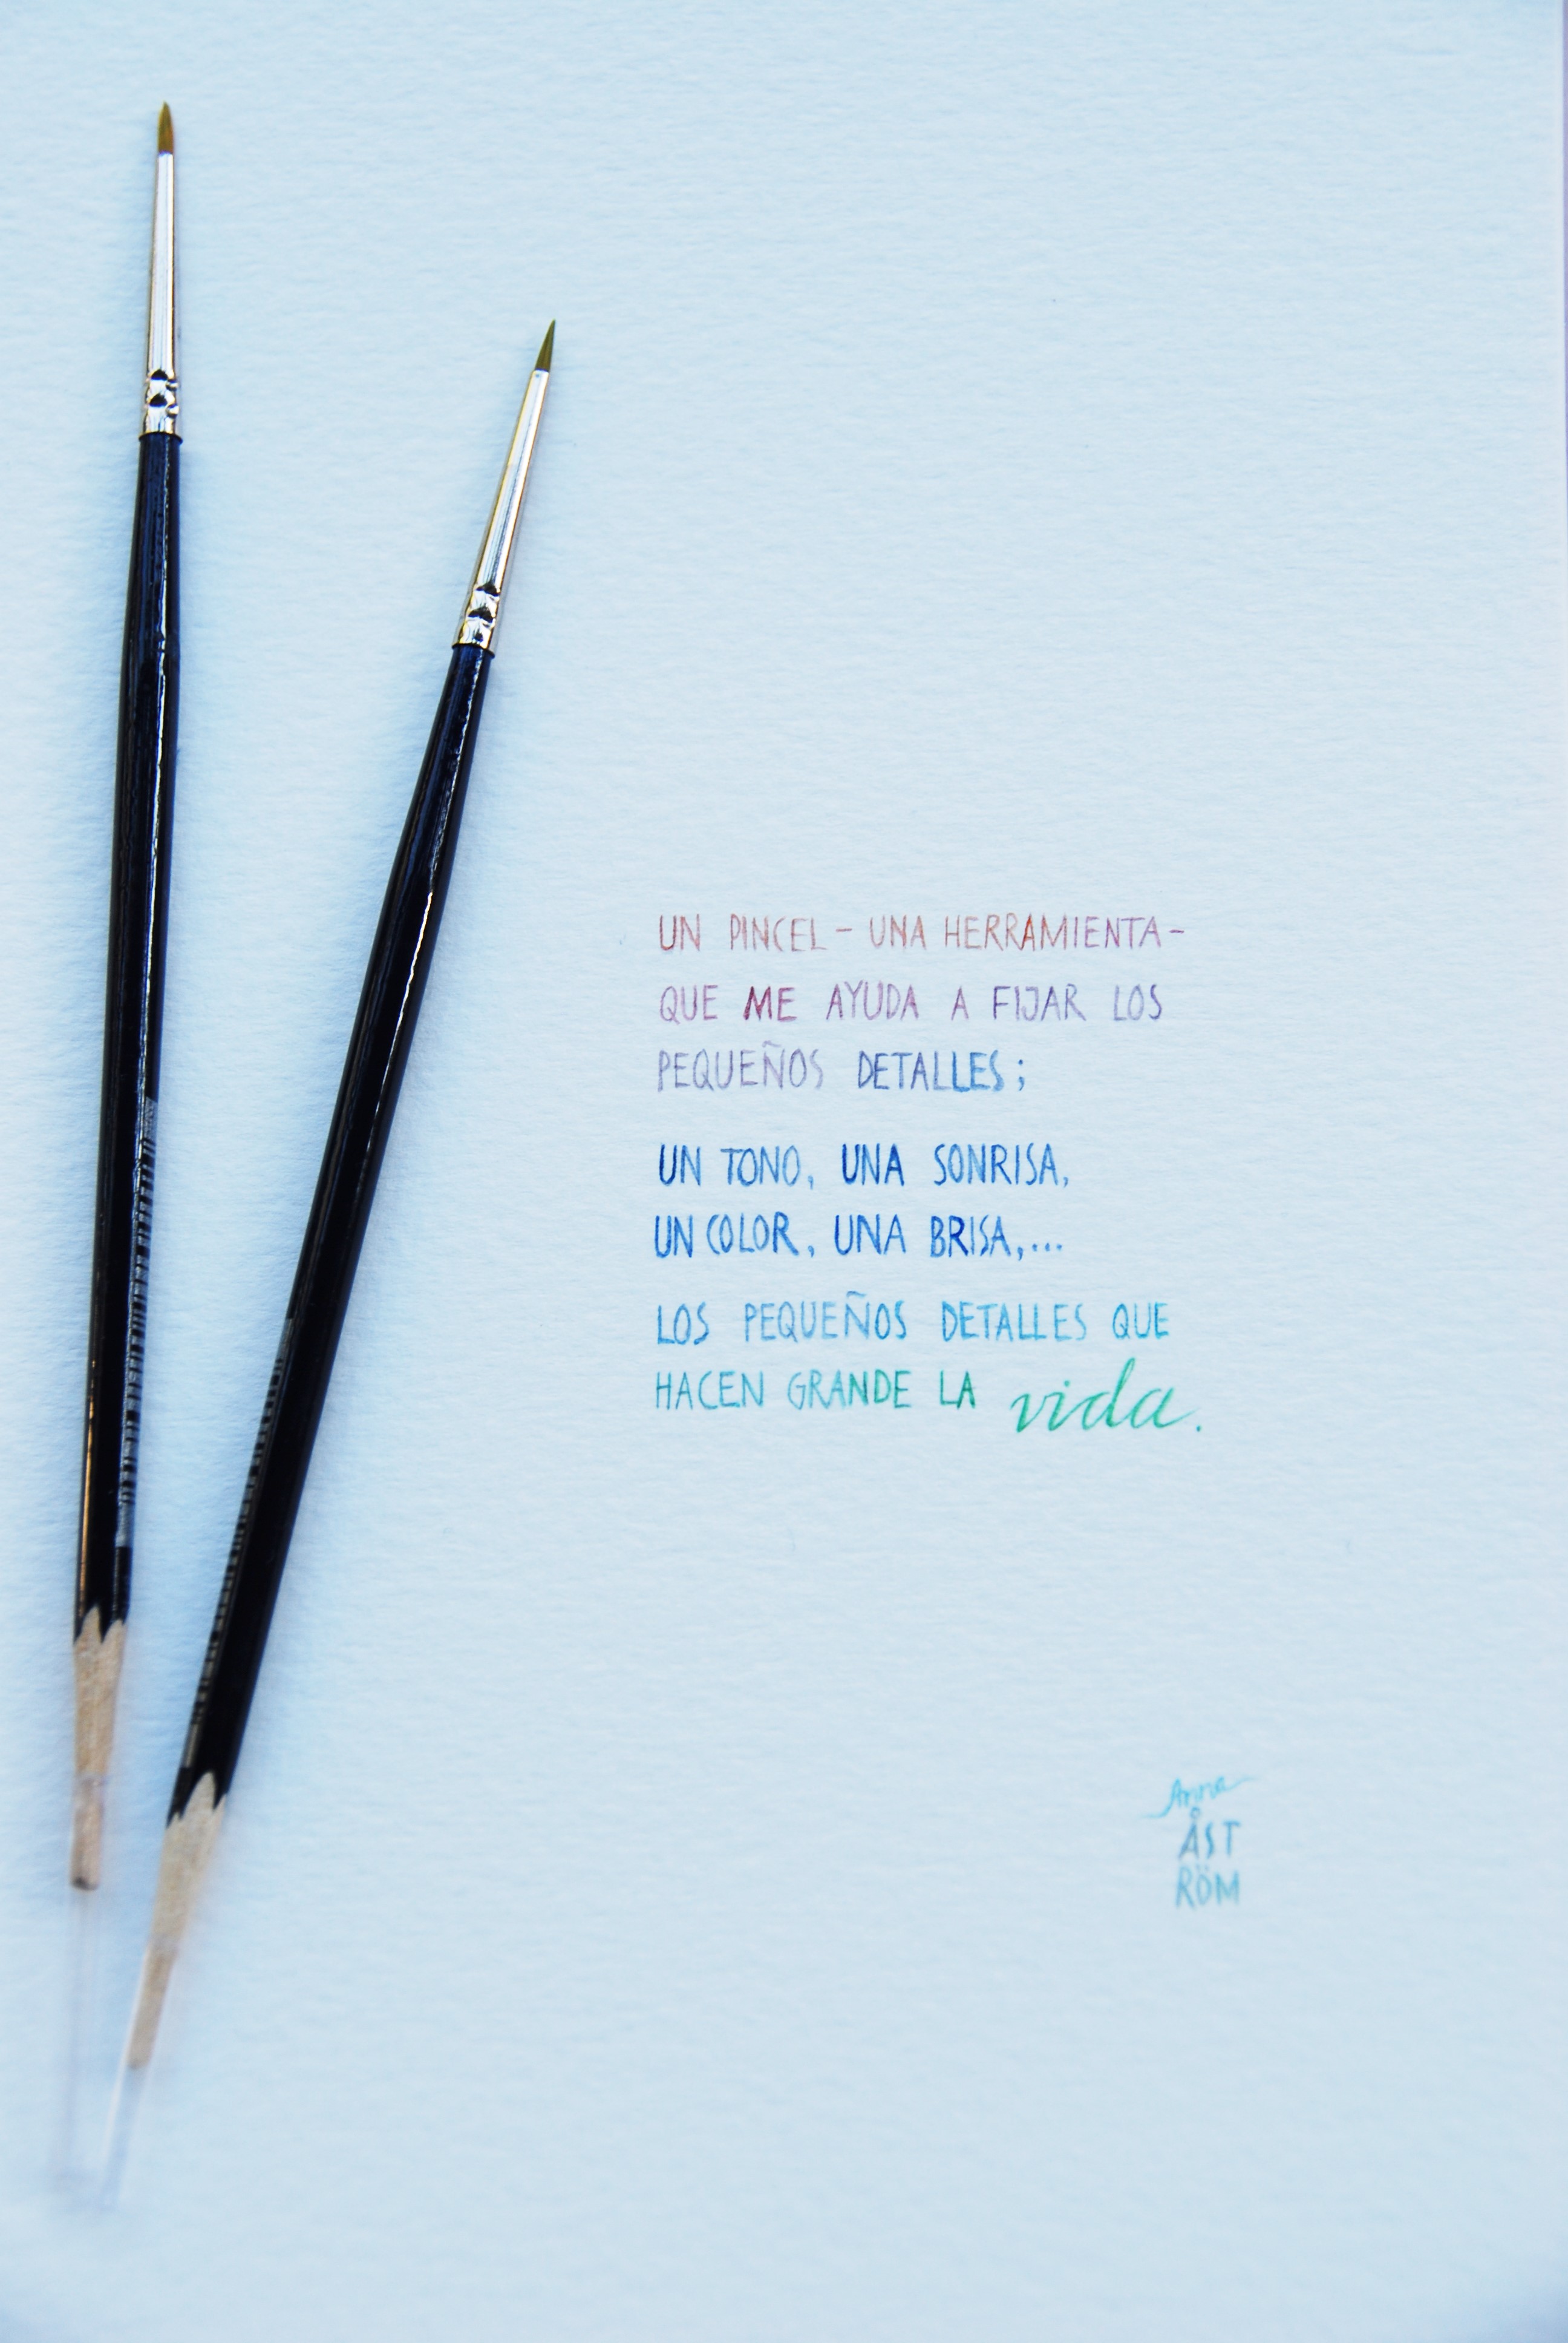 UN PINCEL - UNA HERRAMIENTA -
QUE ME AYUDA A FIJAR LOS
PEQUEÑOS DETALLES;
UN TONO, UNA SONRISA,
UN COLOR, UNA BRISA,...
LOS PEQUEÑOS DETALLES QUE
HACEN GRANDE LA vida.
Anna
ÅST
RÖM